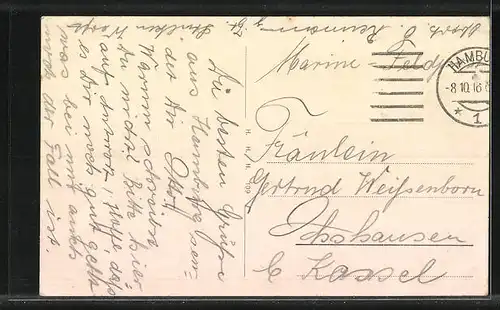 Marine-Feldp
HAMBURG
-8.10.16.
* 1
Fräulein
Gertrud Weißenborn
Ochshausen
b/ Kassel
Die besten Grüße
aus Hamburg sen-
det Dir Otto
Warum schreibst
Du nicht? Bitte hier
auf Antwort, hoffe, daß
es Dir noch gut geht
was bei mir auch
noch der Fall ist.